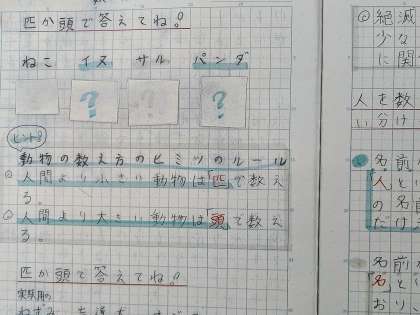 匹か頭で答えてね!
ねこ イヌ サル パンダ
? ?
ヒント?
動物の数え方のヒミツのルール
人間より小さい動物は「匹」で数え
る。
人間より大きい動物は「頭」で数え
る。
匹か頭で答えてね!
実験用の
絶滅
少な
に関
人を数
い分け
名前
「人」と
の名前
だけ
名前が
「名」と
おり